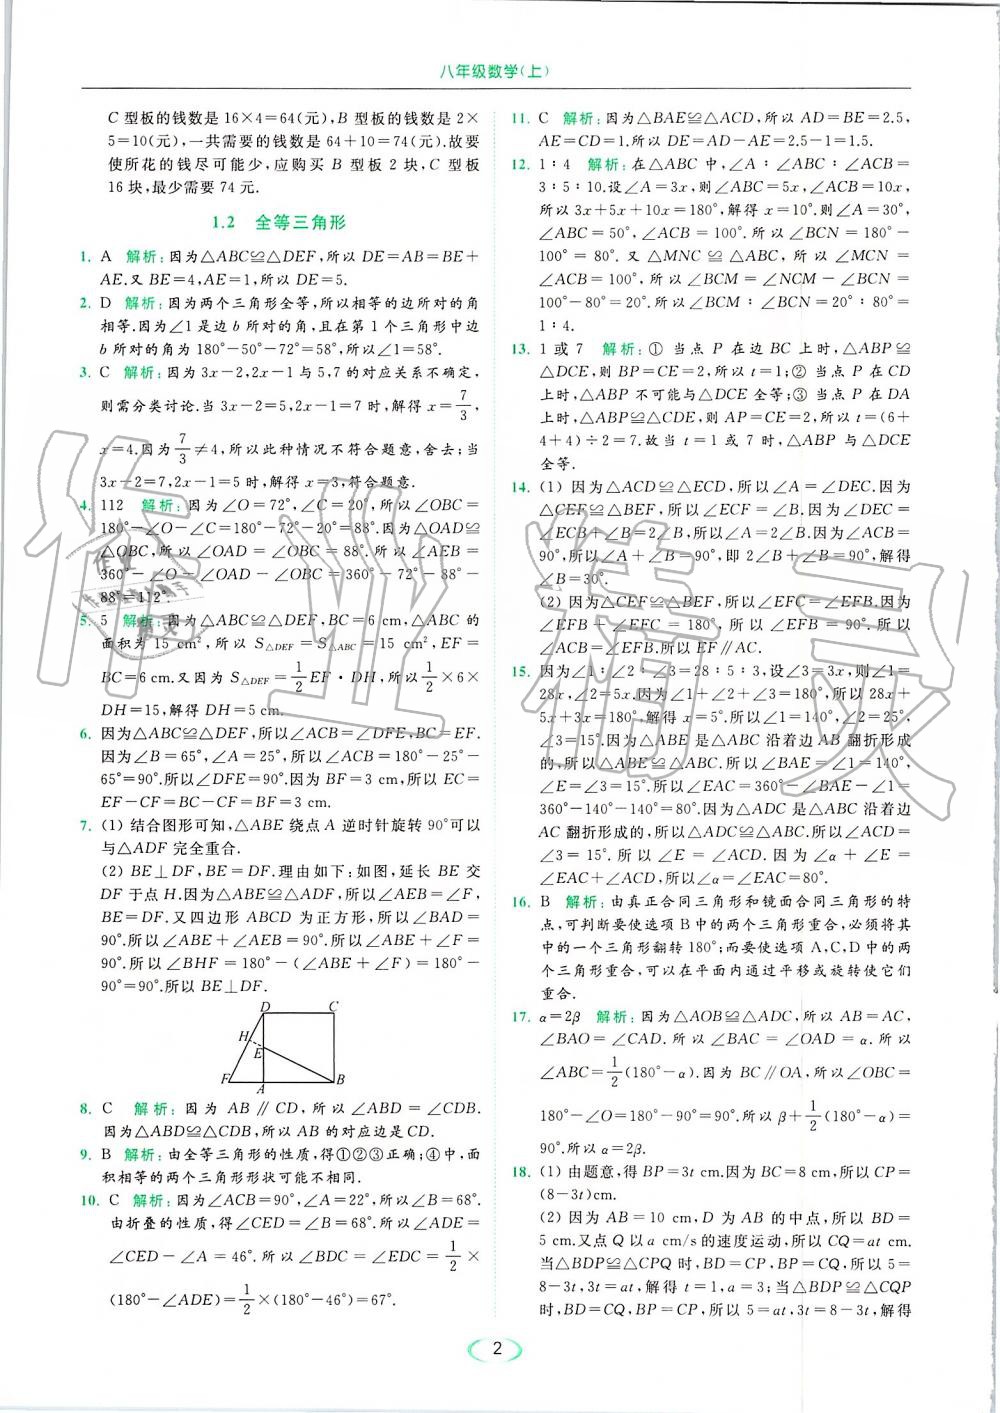 八年级数学(上)
C 型板的钱数是 16×4=64(元),B 型板的钱数是 2×
5=10(元),一共需要的钱数是 64+10=74(元).故要
使所花的钱尽可能少,应购买 B 型板 2 块,C 型板
16 块,最少需要 74 元.
1.2 全等三角形
1. A 解析:因为△ABC≌△DEF,所以 DE=AB=BE+
AE.又 BE=4,AE=1,所以 DE=5.
2. D 解析:因为两个三角形全等,所以相等的边所对的角
相等.因为∠1 是边 b 所对的角,且在第 1 个三角形中边
b 所对的角为 180°-50°-72°=58°,所以∠1=58°.
3. C 解析:因为 3x-2,2x-1 与 5,7 的对应关系不确定,
则需分类讨论.当 3x-2=5,2x-1=7 时,解得 x=7/3,
x=4.因为 7/3≠4,所以此种情况不符合题意,舍去;当
3x-2=7,2x-1=5 时,解得 x=3,符合题意.
4. 112 解析:因为∠O=72°,∠C=20°,所以∠OBC=
180°-∠O-∠C=180°-72°-20°=88°.因为△OAD≌
△OBC,所以∠OAD=∠OBC=88°.所以∠AEB=
360°-∠O-∠OAD-∠OBC=360°-72°-88°-
88°=112°.
5. 5 解析:因为△ABC≌△DEF,BC=6 cm,△ABC 的
面积为 15 cm²,所以 S△DEF=S△ABC=15 cm²,EF=
BC=6 cm.又因为 S△DEF=1/2EF·DH,所以1/2×6×
DH=15,解得 DH=5 cm.
6. 因为△ABC≌△DEF,所以∠ACB=∠DFE,BC=EF.
因为∠B=65°,∠A=25°,所以∠ACB=180°-25°-
65°=90°.所以∠DFE=90°.因为 BF=3 cm,所以 EC=
EF-CF=BC-CF=BF=3 cm.
7. (1) 结合图形可知,△ABE 绕点 A 逆时针旋转 90°可以
与△ADF 完全重合.
(2) BE⊥DF,BE=DF.理由如下:如图,延长 BE 交
DF 于点 H.因为△ABE≌△ADF,所以∠AEB=∠F,
BE=DF.又四边形 ABCD 为正方形,所以∠BAD=
90°.所以∠ABE+∠AEB=90°.所以∠ABE+∠F=
90°.所以∠BHF=180°-(∠ABE+∠F)=180°-
90°=90°.所以 BE⊥DF.
D C
H
E
F A B
8. C 解析:因为 AB∥CD,所以∠ABD=∠CDB.
因为△ABD≌△CDB,所以 AB 的对应边是 CD.
9. B 解析:由全等三角形的性质,得①②③正确;④中,面
积相等的两个三角形形状可能不相同.
10. C 解析:因为∠ACB=90°,∠A=22°,所以∠B=68°.
由折叠的性质,得∠CED=∠B=68°.所以∠ADE=
∠CED-∠A=46°.所以∠BDC=∠EDC=1/2×
(180°-∠ADE)=1/2×(180°-46°)=67°.
11. C 解析:因为△BAE≌△ACD,所以 AD=BE=2.5,
AE=CD=1.所以 DE=AD-AE=2.5-1=1.5.
12. 1∶4 解析:在△ABC 中,∠A∶∠ABC∶∠ACB=
3∶5∶10.设∠A=3x,则∠ABC=5x,∠ACB=10x,
所以 3x+5x+10x=180°,解得 x=10°.则∠A=30°,
∠ABC=50°,∠ACB=100°.所以∠BCN=180°-
100°=80°.又△MNC≌△ABC,所以∠MCN=
∠ACB=100°.所以∠BCM=∠NCM-∠BCN=
100°-80°=20°.所以∠BCM∶∠BCN=20°∶80°=
1∶4.
13. 1 或 7 解析:① 当点 P 在边 BC 上时,△ABP≌
△DCE,则 BP=CE=2,所以 t=1;② 当点 P 在 CD
上时,△ABP 不可能与△DCE 全等;③ 当点 P 在 DA
上时,△ABP≌△CDE,则 AP=CE=2,所以 t=(6+
4+4)÷2=7.故当 t=1 或 7 时,△ABP 与△DCE
全等.
14. (1) 因为△ACD≌△ECD,所以∠A=∠DEC.因为
△CEF≌△BEF,所以∠ECF=∠B.因为∠DEC=
∠ECB+∠B=2∠B,所以∠A=2∠B.因为∠ACB=
90°,所以∠A+∠B=90°,即 2∠B+∠B=90°,解得
∠B=30°.
(2) 因为△CEF≌△BEF,所以∠EFC=∠EFB.因为
∠EFB+∠EFC=180°,所以∠EFB=90°.所以
∠ACB=∠EFB.所以 EF∥AC.
15. 因为∠1∶∠2∶∠3=28∶5∶3,设∠3=3x,则∠1=
28x,∠2=5x.因为∠1+∠2+∠3=180°,所以 28x+
5x+3x=180°,解得 x=5°.所以∠1=140°,∠2=25°,
∠3=15°.因为△ABE 是△ABC 沿着边 AB 翻折形成
的,所以△ABE≌△ABC.所以∠BAE=∠1=140°,
∠E=∠3=15°.所以∠EAC=360°-∠BAE-∠1=
360°-140°-140°=80°.因为△ADC 是△ABC 沿着边
AC 翻折形成的,所以△ADC≌△ABC.所以∠ACD=
∠3=15°.所以∠E=∠ACD.因为∠α+∠E=
∠EAC+∠ACD,所以∠α=∠EAC=80°.
16. B 解析:由真正合同三角形和镜面合同三角形的特
点,可判断要使选项 B中的两个三角形重合,必须将其
中的一个三角形翻转 180°;而要使选项 A,C,D 中的两
个三角形重合,可以在平面内通过平移或旋转使它们
重合.
17. α=2β 解析:因为△AOB≌△ADC,所以 AB=AC,
∠BAO=∠CAD.所以∠BAC=∠OAD=α.所以
∠ABC=1/2(180°-α).因为 BC∥OA,所以∠OBC=
180°-∠O=180°-90°=90°.所以 β+1/2(180°-α)=
90°.所以 α=2β.
18. (1) 由题意,得 BP=3t cm.因为 BC=8 cm,所以 CP=
(8-3t)cm.
(2) 因为 AB=10 cm,D 为 AB 的中点,所以 BD=
5 cm.又点 Q 以 a cm/s 的速度运动,所以 CQ=at cm.
当△BDP≌△CPQ 时,BD=CP,BP=CQ,所以 5=
8-3t,3t=at,解得 t=1,a=3;当△BDP≌△CQP
时,BD=CQ,BP=CP,所以 5=at,3t=8-3t,解得
2
作业精灵